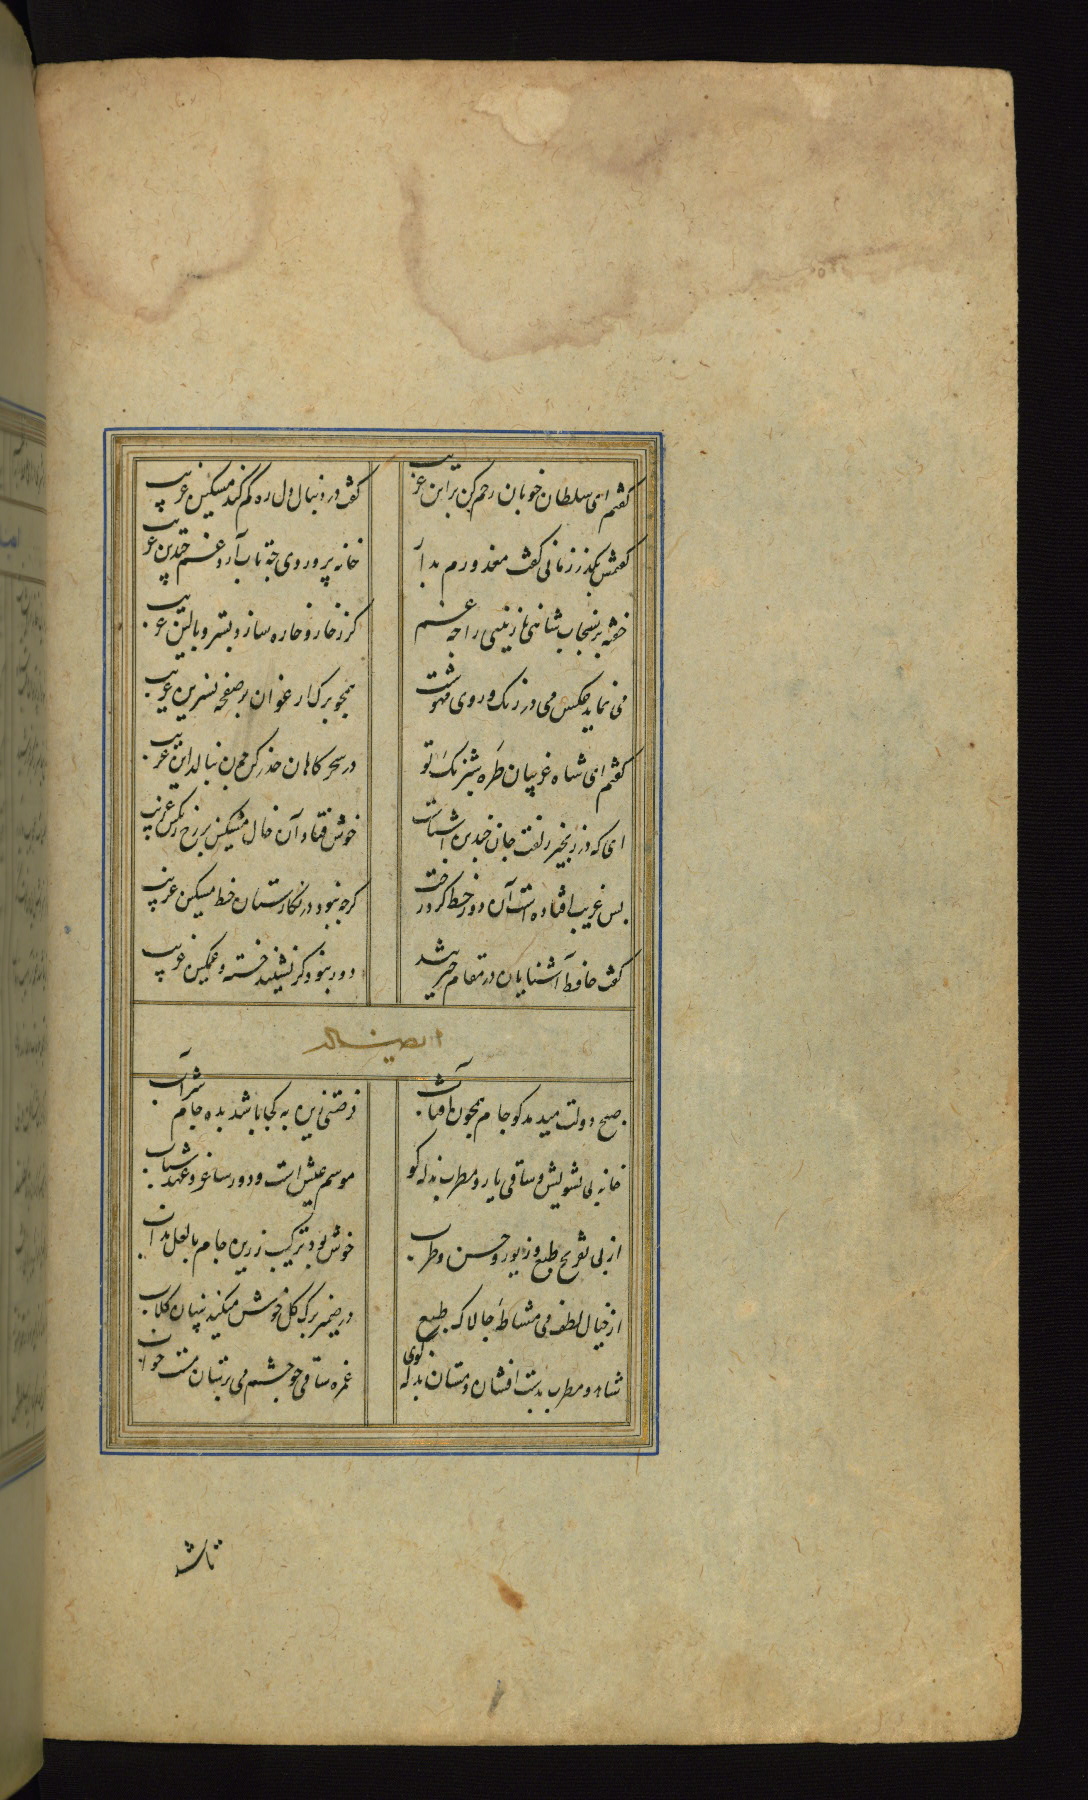 کفتم ای سلطان خوبان رحم کن بر این غریب
کفت در دنبال دل ره کم کند مسکین غریب
کفتمش بکذر زمانی کفت معذورم بدار
خانه پروردی چه تاب آرد غم چندین غریب
خفته بر سنجاب شاهی نازنینی را چه غم
کر ز خار و خاره سازد بستر و بالین غریب
می نماید عکس می در رنک روی مهوشت
همچو برک ارغوان بر صفحه نسرین غریب
کفتم ای شاه غریبان طره شبرنک تو
در سحرکاهان حذر کن چون بنالد این غریب
ای که در زنجیر زلفت جان چندین آشناست
خوش فتاد آن خال مشکین بر رخ رنکین غریب
بس غریب افتاده است آن مور خط کرد رخت
کرچه نبود در نکارستان خط مشکین غریب
کفت حافظ آشنایان در مقام حیرتند
دور نبود کر نشیند خسته و غمکین غریب
ایضا له
صبح دولت میدمد کو جام همچون آفتاب
فرصتی زین به کجا باشد بده جام شراب
خانه بی تشویش و ساقی یار و مطرب بذله کو
موسم عیش است و دور ساغر و عهد شباب
از پی تفریح طبع و زیور حسن و طرب
خوش بود ترکیب زرین جام با لعل مذاب
از خیال لطف می مشاطه چالاک طبع
در ضمیر برک کل خوش میکند پنهان کلاب
شاهد و مطرب بدست افشان و مستان بذله کوی
غمزه ساقی ز چشم می پرستان مست خواب
تا شد